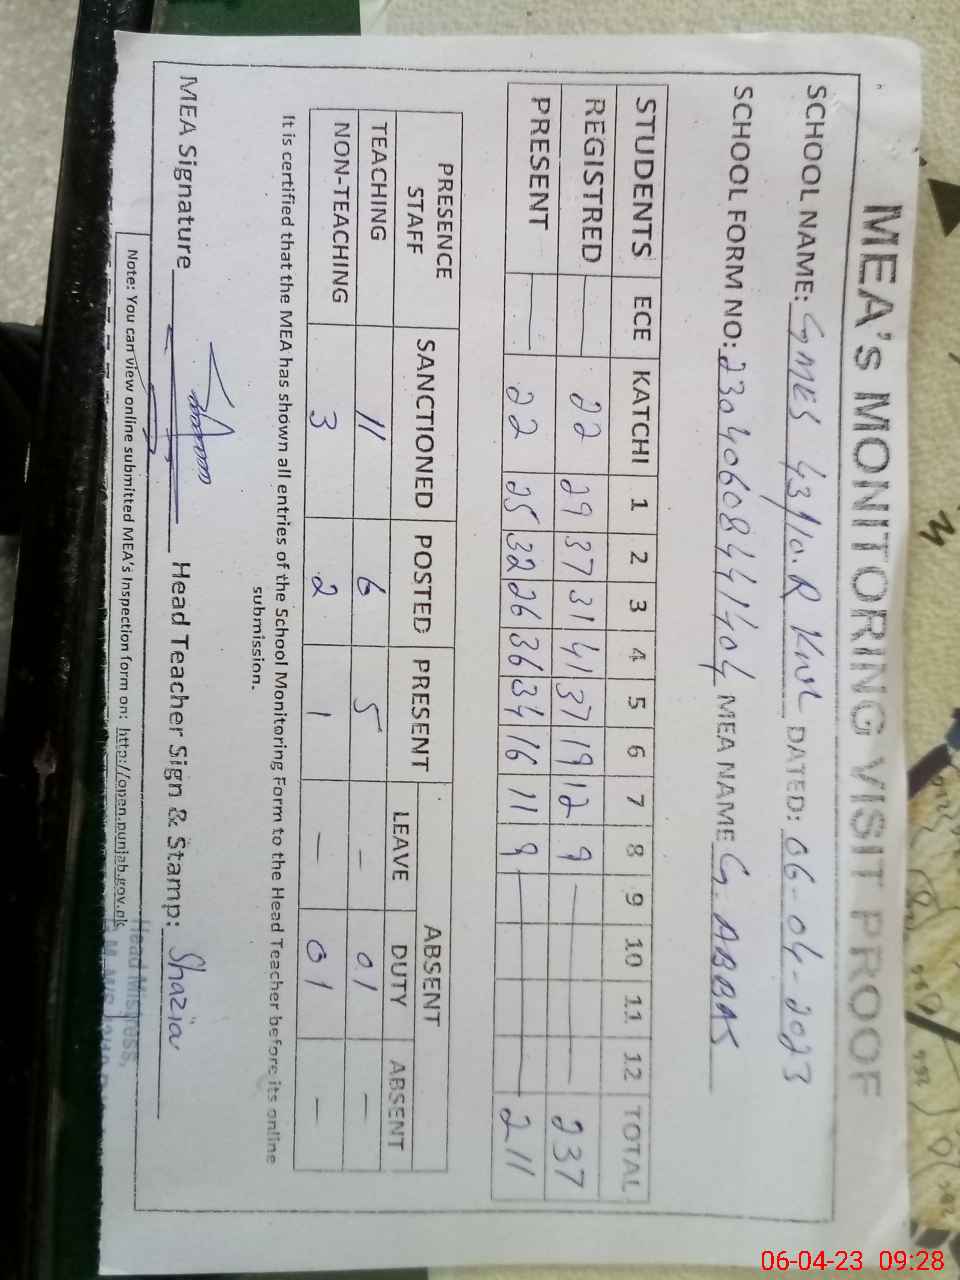 MEA's MONITORING VISIT PROOF
SCHOOL NAME: GMES 43/10.R Kwl DATED: 06-04-2023
SCHOOL FORM NO: 23040608441404 MEA NAME G. ABBAS
STUDENTS ECE KATCHI 1 2 3 4 5 6 7 8 9 10 11 12 TOTAL
REGISTRED — 22 29 37 31 41 37 19 12 9 — 237
PRESENT — 22 25 32 26 36 34 16 11 9 — 211
PRESENCE STAFF SANCTIONED POSTED PRESENT ABSENT
LEAVE DUTY ABSENT
TEACHING 11 6 5 — 01 —
NON-TEACHING 3 2 1 — 01 —
It is certified that the MEA has shown all entries of the School Monitoring Form to the Head Teacher before its online
submission.
MEA Signature Head Teacher Sign & Stamp: Shazia
Head Mistress,
Note: You can view online submitted MEA's Inspection form on: http://open.punjab.gov.pk
06-04-23 09:28